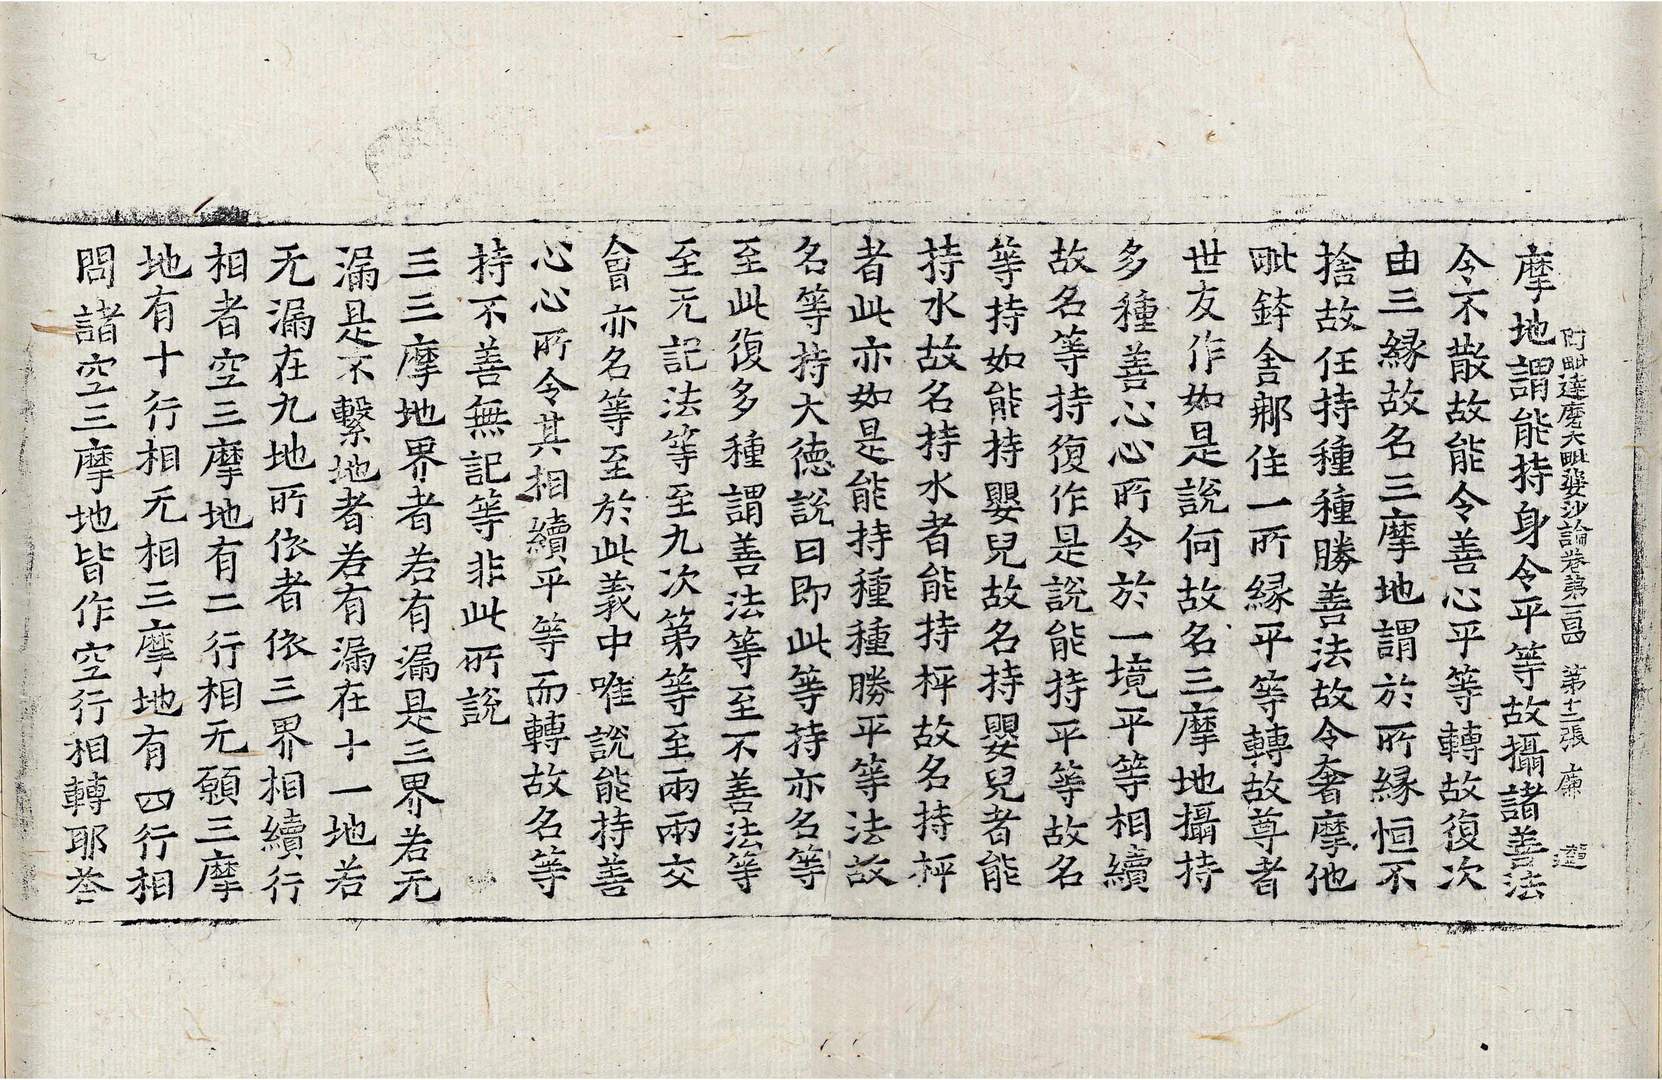 阿毗達磨大毗婆沙論卷第一百四 第十二張 廉
摩地謂能持身令平等故攝諸善法
令不散故能令善心平等轉故復次
由三緣故名三摩地謂於所緣恒不
捨故任持種種勝善法故令奢摩他
毗鉢舍那住一所緣平等轉故尊者
世友作如是說何故名三摩地攝持
多種善心心所令於一境平等相續
故名等持復作是說能持平等故名
等持如能持嬰兒故名持嬰兒者能
持水故名持水者能持枰故名持枰
者此亦如是能持種種勝平等法故
名等持大德說曰即此等持亦名等
至此復多種謂善法等至不善法等
至无記法等至九次第等至兩兩交
會亦名等至於此義中唯說能持善
心心所令其相續平等而轉故名等
持不善無記等非此所說
三三摩地界者若有漏是三界若无
漏是不繫地者若有漏在十一地若
无漏在九地所依者依三界相續行
相者空三摩地有二行相无願三摩
地有十行相无相三摩地有四行相
問諸空三摩地皆作空行相轉耶荅